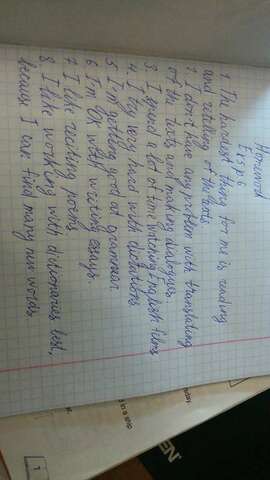 Homework
Ex 5 p 6
1. The hardest thing for me is reading
and retelling of the texts.
2. I don't have any problem with translating
of the texts and making dialogues.
3. I spend a lot of time watching English films
4. I try very hard with dictations
5. I'm getting good at grammar.
6. I'm OK with writing essays.
7. I like reciting poems
8. I like working with dictionaries best,
because I can find many new words.